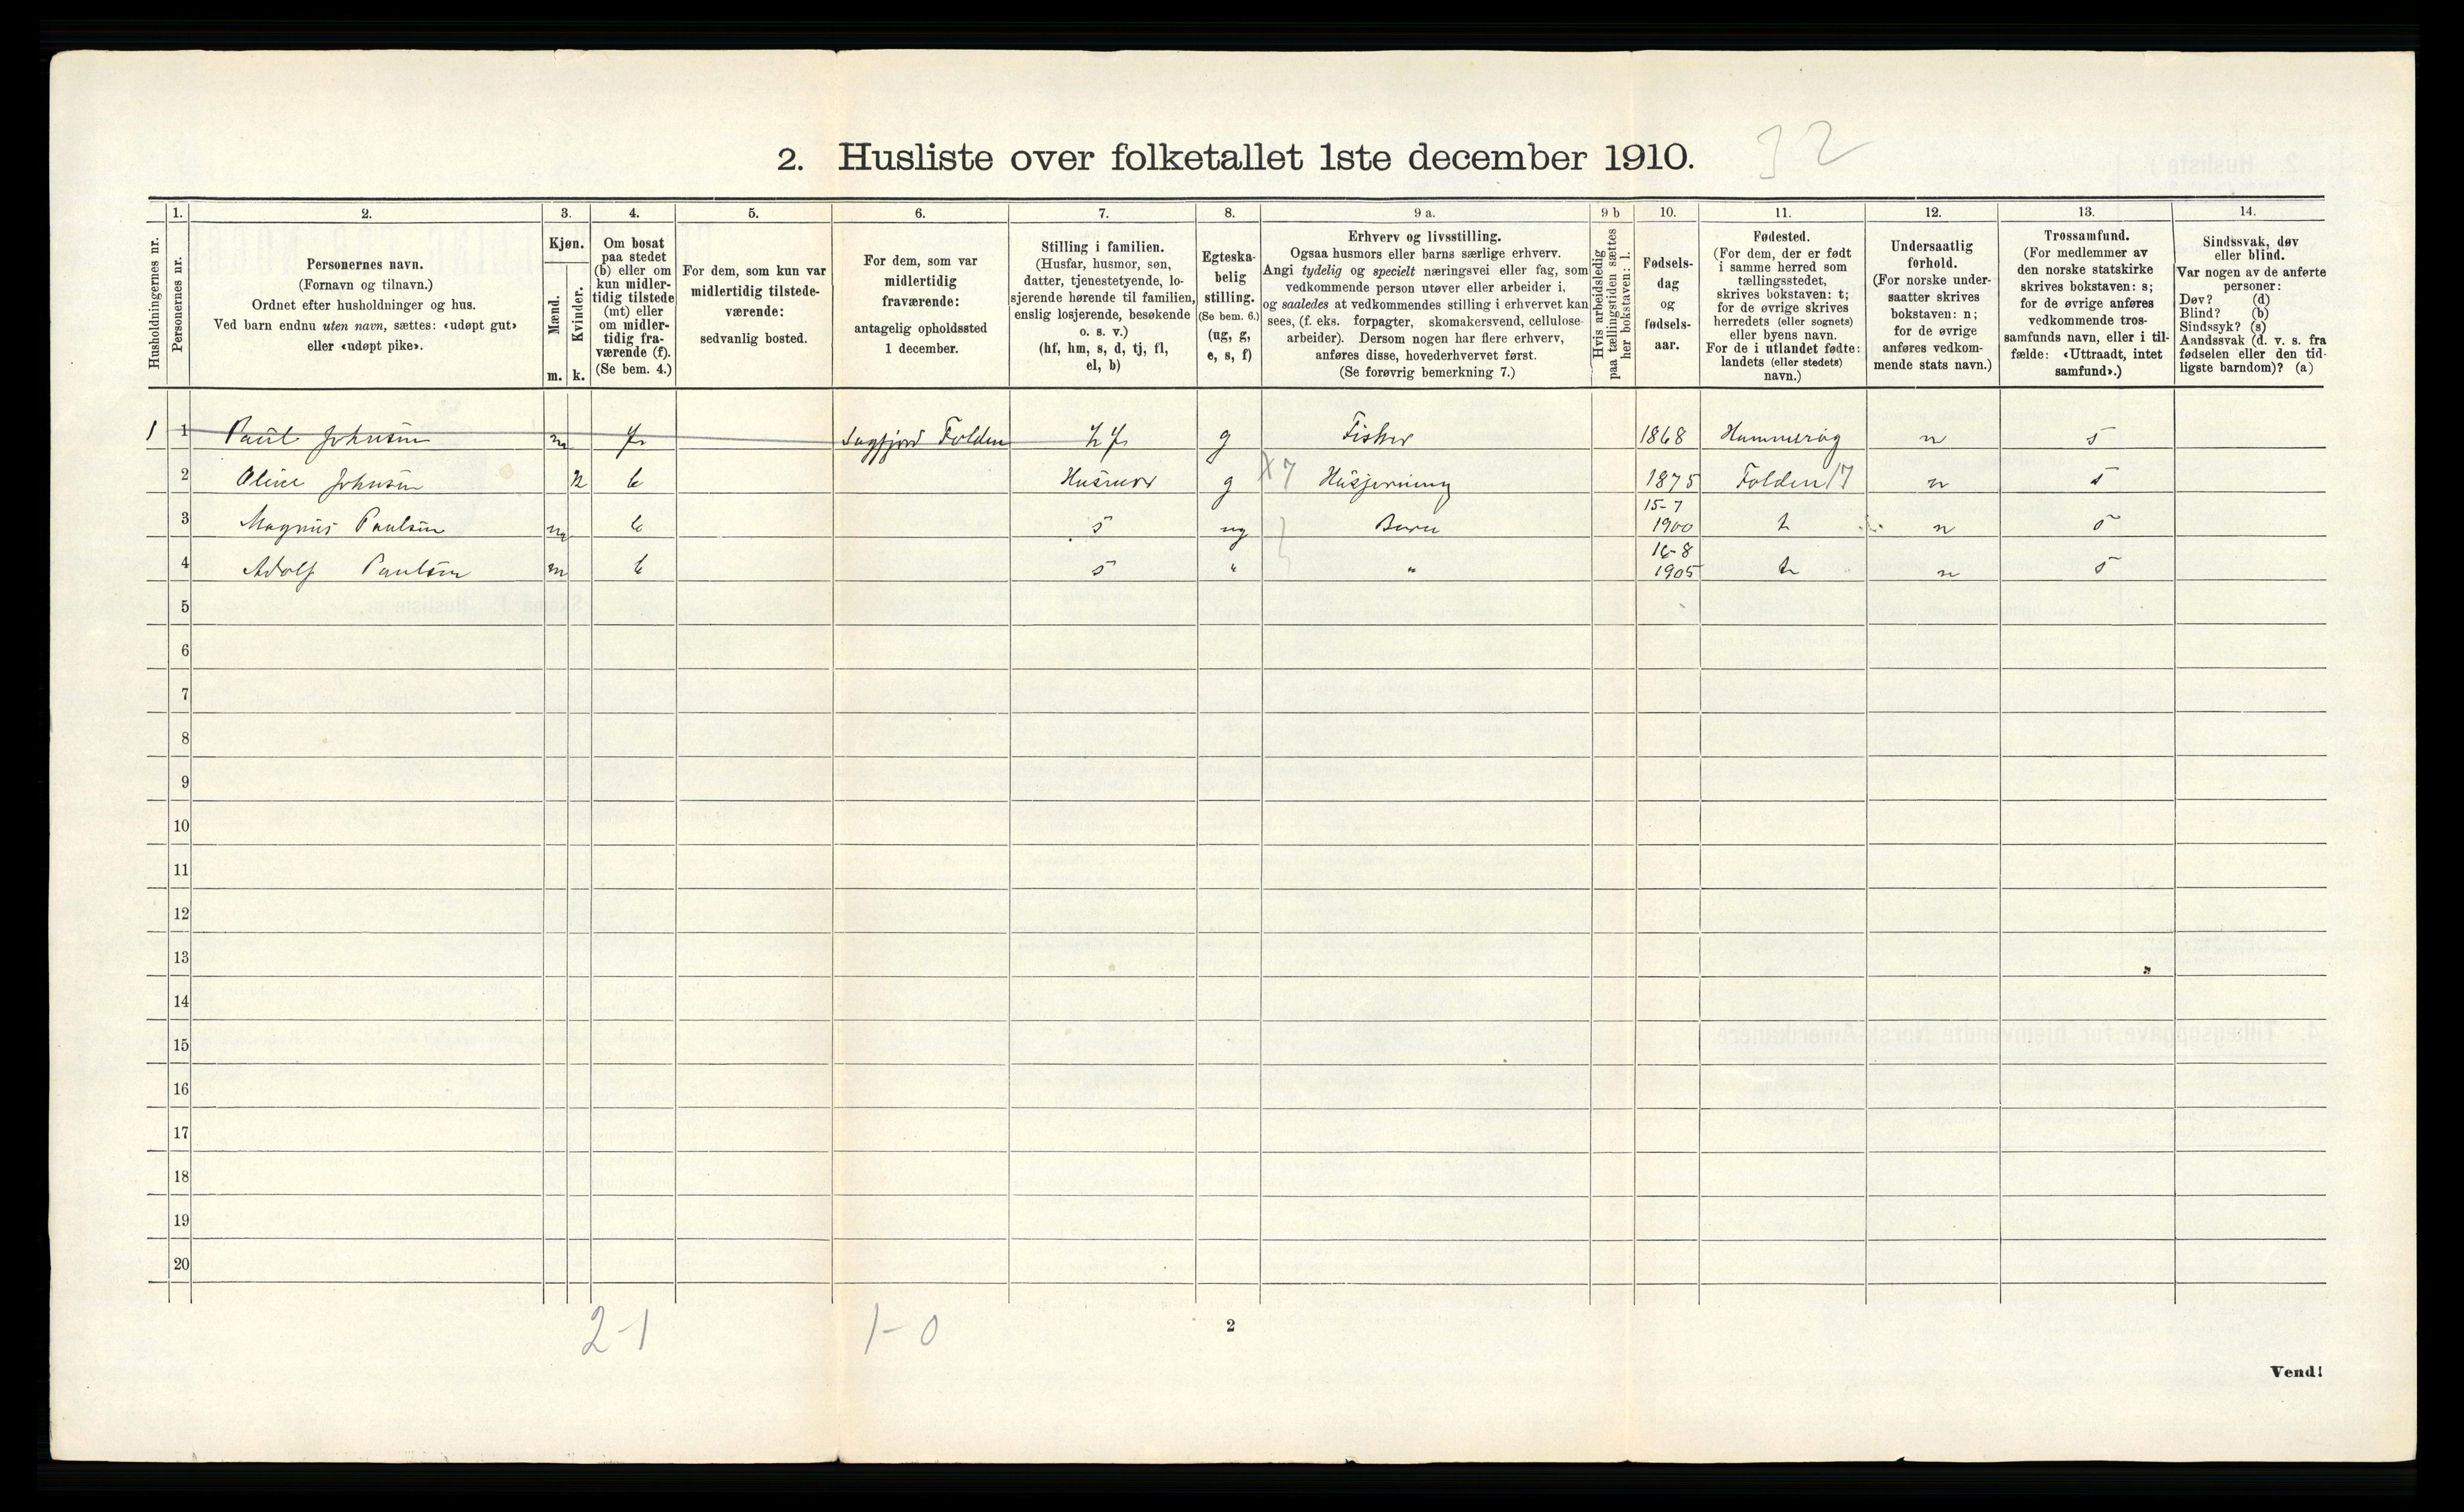 2. Husliste over folketallet 1ste december 1910. 32
Husholdningernes nr.
1. Personernes nr.
2. Personernes navn.
(Fornavn og tilnavn.)
Ordnet efter husholdninger og hus.
Ved barn endnu uten navn, sættes: «udøpt gut»
eller «udøpt pike».
3. Kjøn.
Mænd. Kvinder.
m. k.
4. Om bosat
paa stedet
(b) eller om
kun midler-
tidig tilstede
(mt) eller
om midler-
tidig fra-
værende (f).
(Se bem. 4.)
5. For dem, som kun var
midlertidig tilstede-
værende:
sedvanlig bosted.
6. For dem, som var
midlertidig
fraværende:
antagelig opholdssted
1 december.
7. Stilling i familien.
(Husfar, husmor, søn,
datter, tjenestetyende, lo-
sjerende hørende til familien,
enslig losjerende, besøkende
o. s. v.)
(hf, hm, s, d, tj, fl,
el, b)
8. Egteska-
belig
stilling.
(Se bem. 6.)
(ug, g,
e, s, f)
9 a. Erhverv og livsstilling.
Ogsaa husmors eller barns særlige erhverv.
Angi tydelig og specielt næringsvei eller fag, som
vedkommende person utøver eller arbeider i,
og saaledes at vedkommendes stilling i erhvervet kan
sees, (f. eks. forpagter, skomakersvend, cellulose-
arbeider). Dersom nogen har flere erhverv,
anføres disse, hovederhvervet først.
(Se forøvrig bemerkning 7.)
9 b Hvis arbeidsledig
paa tællingstiden sættes
her bokstaven: l.
10. Fødsels-
dag
og
fødsels-
aar.
11. Fødested.
(For dem, der er født
i samme herred som
tællingsstedet,
skrives bokstaven: t;
for de øvrige skrives
herredets (eller sognets)
eller byens navn.
For de i utlandet fødte:
landets (eller stedets)
navn.)
12. Undersaatlig
forhold.
(For norske under-
saatter skrives
bokstaven: n;
for de øvrige
anføres vedkom-
mende stats navn.)
13. Trossamfund.
(For medlemmer av
den norske statskirke
skrives bokstaven: s;
for de øvrige anføres
vedkommende tros-
samfunds navn, eller i til-
fælde: «Uttraadt, intet
samfund».)
14. Sindssvak, døv
eller blind.
Var nogen av de anførte
personer:
Døv? (d)
Blind? (b)
Sindssyk? (s)
Aandssvak (d. v. s. fra
fødselen eller den tid-
ligste barndom)? (a)
1 1 Paul Johnsen m f Sagfjord Folden hf g Fisker 1868 Hammerøy n s
2 Oline Johnsen k b Husmor g X7 Husgjerning 1875 Folden 17 n s
3 Magnus Paulsen m b s ug Barn 15-7 1900 t n s
4 Adolf Paulsen m b s " " 16-8 1905 t n s
5
6
7
8
9
10
11
12
13
14
15
16
17
18
19
20
2-1 1-0
2
Vend!